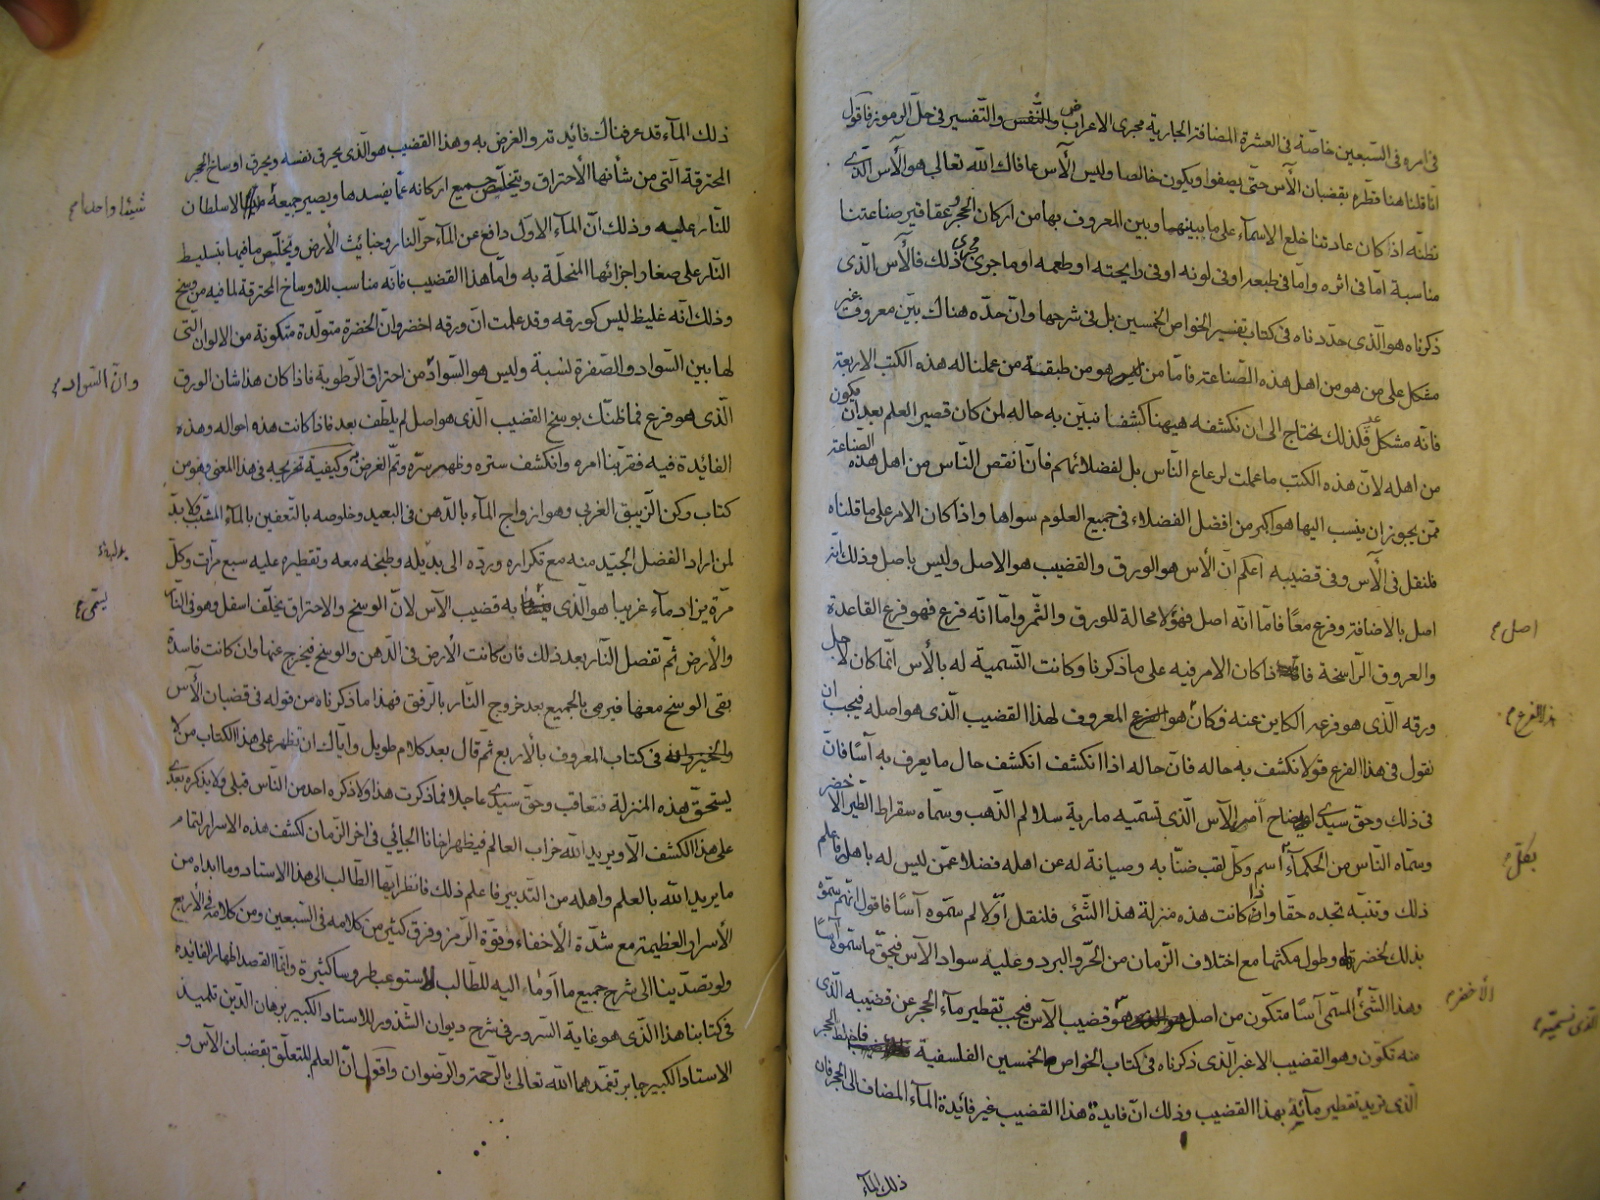 فى امره فى السبعين خاصّة فى العشرة المضافة الجارية مجرى الاعراض والنّفس والتّفسير فى حلّ الرموز فاقول
انّا قلنا هنا قطّره بقضبان الآس حتّى يصفوا ويكون خالصا وليس الآس عافاك الله تعالى هو الآس الّذى
تظنّه اذ كان عادتنا خلع الاسمآء على ما بينهما وبين المعروف بها من اركان الحجر وعقاقير صناعتنا
مناسبة امّا فى اثره وامّا فى طبعه او فى لونه او فى رايحته او طعمه او ما جرى مجرى ذلك فالآس الذى
ذكرناه هو الّذى حدّدناه فى كتاب تفسير الخواص الخمسين بل فى شرحها وانّ حدّه هناك بيّن معروف غير
مشكل على من هو من اهل هذه الصّناعة فامّا من هو من طبقة من عملنا له هذه الكتب الاربعة
فانّه مشكل عنه فلذلك نحتاج الى ان نكشفه هيهنا كشفا نبيّن به حاله لمن كان قصير العلم بعد ان يكون
من اهله لانّ هذه الكتب ما عملت لرعاع النّاس بل لفضلائهم فانّ انقص النّاس من اهل هذه الصناعة
ممّن يجوز ان ينسب اليها هو اكبر من افضل الفضلاء فى جميع العلوم سواها واذا كان الامر على ما قلناه
فلنقل فى الآس وفى قضيبه اعلم انّ الآس هو الورق والقضيب هو الاصل وليس باصل وذلك انّه
اصل بالاضافة وفرع معًا فامّا انّه اصل فهو لا محالة للورق والثّمر وامّا انّه فرع فهو فرع القاعدة
اصل م
والعروق الرّاسخة فاذا كان الامر فيه على ما ذكرنا وكانت التّسمية له بالآس انّما كان لاجل
ورقه الّذى هو فرعه الكاين عنه وكان هو الفرع المعروف لهذا القضيب الّذى هو اصله فيجب ان
نقول فى هذا الفرع قولا نكشف به حاله فانّ حاله اذا انكشف انكشف حال ما يعرف به آسًا فانّ
فى ذلك وحقّ سيدى ايضاح امر الآس الّذى تسمّيه مارية سلالم الذّهب وسمّاه سقراط الطير الاخضر
وسمّاه النّاس من الحكمآء اسم وكلّ لقب ضنّا به وصيانة له عن اهله فضلا عمّن ليس له باهل فاعلم
ذلك وتنبّه تجده حقّا واذا كانت هذه منزلة هذا الشّئى فلنقل اوّلا لم سمّوه آسًا فاقول انهم سمّوه
بذلك لخضرته وطول مكثها مع اختلاف الزّمان من الحرّ والبرد وعليه سواد الآس فبحقّ ما سمّوه آسًا
وهذا الشّئ المسمّى آسًا متكوّن من اصل هو قضيب الآس فيجب تقطير مآء الحجر عن قضيبه الّذى
الأخضر م
الذى نسميه م
منه تكوّن وهو القضيب الاغبر الّذى ذكرناه فى كتاب الخواص الخمسين الفلسفية فاخلط الحجر
الّذى تريد تقطير مآئه بهذا القضيب وذلك انّ فايدة هذا القضيب غير فائدة المآء المضاف الى الحجر فان
ذلك المآء
ذلك المآء قد عرفناك فائدته والغرض به وهذا القضيب هو الّذى يحرق نفسه ويحرق اوساخ الحجر
المحترقة الّتى من شأنها الاحتراق ويتخلّص جميع اركانه عمّا يفسدها ويصير جميعه لا سلطان
شيئا واحدا م
للنّار عليه وذلك انّ المآء الاوّل دافع عن المآء حرّ النار وخبايث الأرض وتخلّيص ما فيها بتسليط
النّار على صغار اجزائها المنحلّة به وامّا هذا القضيب فانّه مناسب للاوساخ المحترقة لما فيه من وسخ
وذلك انّه غليظ ليس كورقه وقد علمت انّ ورقه اخضر وانّ الخضرة متولّدة متكونة من الالوان الّتى
لها بين السّواد والصّفرة نسبة وليس هو السّواد من احتراق الرّطوبة فاذا كان هذا شان الورق
وانّ السّواد م
الّذى هو فرع فما ظنّك بوسخ القضيب الّذى هو اصل لم يلطّف بعد فاذا كانت هذه احواله وهذه
الفائدة فيه فقد بنا امره وانكشف ستره وظهر سرّه وتمّ الغرض به وكيفية تخريجه فى هذا المعنى وهو من
كتاب وكن الزّيبق الغربى وهو ازواج المآء بالدّهن فى البعيد وخلوصه بالتعفين بالمآء المثلّث ولا بدّ
لمن اراد الفضل الجيّد منه مع تكراره وردّه الى بدّيله وطبخه معه وتقطيره عليه سبع مرّات وكلّ
مرّة يزاد مآء غريبا هو الّذى به قضيب الآس لانّ الوسخ والاحتراق يخلّف اسفل وهو فى النّار
يسمّى ع
والأرض ثمّ تفصل النّار بعد ذلك فان كانت الأرض فى الدّهن والوسخ فيخرج عنها وان كانت فاسدة
بقى الوسخ معها فيرمى بالجميع بعد خروج النّار بالرّفق فهذا ما ذكرناه من قوله فى قضبان الآس
والخيزران فى كتاب المعروف بالأربع ثمّ قال بعد كلام طويل وايّاك ان تظهر على هذا الكتاب من لا
يستحقّ هذه المنزلة فتعاقب وحقّ سيدى عاجلا فما ذكرت هذا ولا ذكره احد من النّاس قبلى ولا يذكره بعدى
على هذا الكشف الّا ويريد الله خراب العالم فيظهر اخانا الجيائى فى اخر الزّمان لكشف هذه الاسرار لتمام
ما يريد الله بالعلم واهله من التّدبير فاعلم ذلك فانظر ايّها الطّالب الى هذا الاستاد وما ابداه من
الأسرار العظيمة مع شدّة الاخفاء وقوّة الرّمز وفرق كثير من كلامه فى السّبعين ومن كلامه فى الأربع
ولو تصدّينا الى شرح جميع ما اومٔا اليه للطّالب لاستوعب طروسا كثيرة وانّما القصد اظهار الفائدة
فى كتابنا هذا الّذى هو غاية السّرور فى شرح ديوان الشّذور للاستاد الكبير برهان الدّين تلميذ
الاستاد الكبير جابر تغمّدهما الله تعالى بالرّحمة والرّضوان واقول انّ العلم المتعلّق بقضبان الآس و